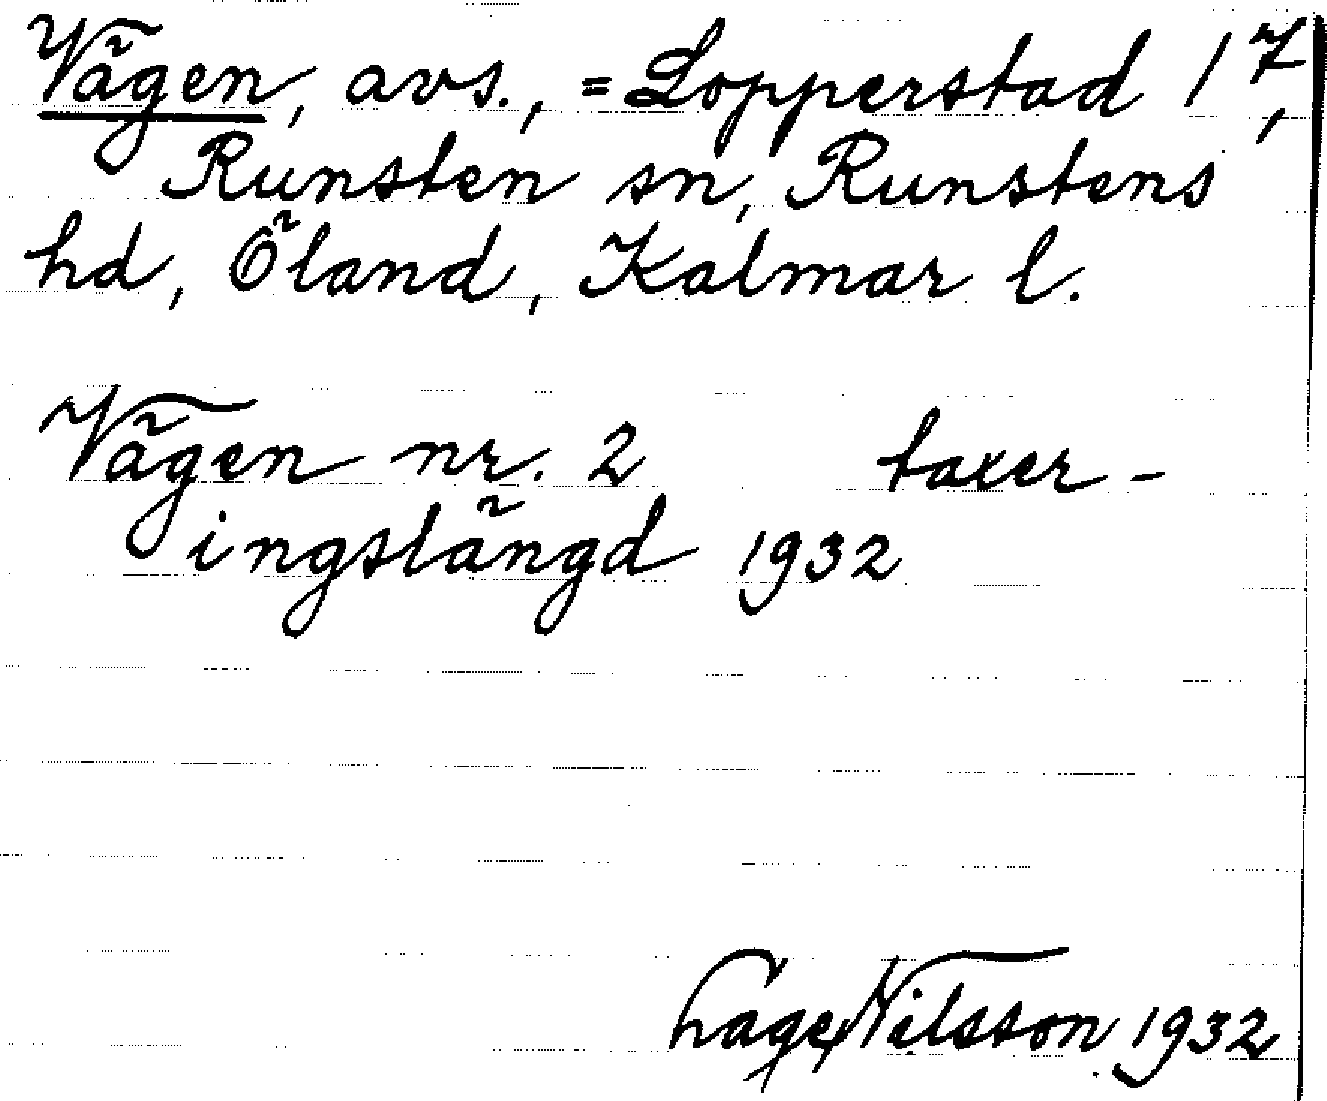 Vägen, avs., = Lopperstad 1 7,
Runsten sn, Runstens
hd, Öland, Kalmar l.
Vägen nr. 2 taxer-
ingslängd 1932
Lage Nilsson 1932